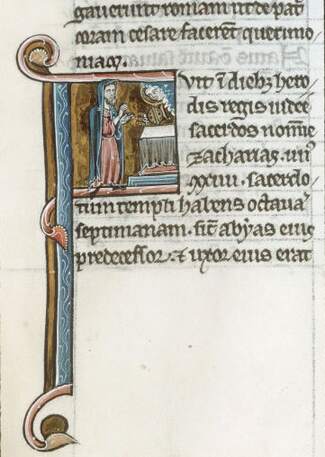 gauerunt romam ut de pau
coram cesare facerent querimo
niam.
Fuit ī diebȝ hero
dis regis iudee
sacerdos nomīe
zacharias. un
xxiiii. sacerdo
tum templi habens octauā
septimanam. sic̄ abyas eius
predecessor. et uxor eius erat